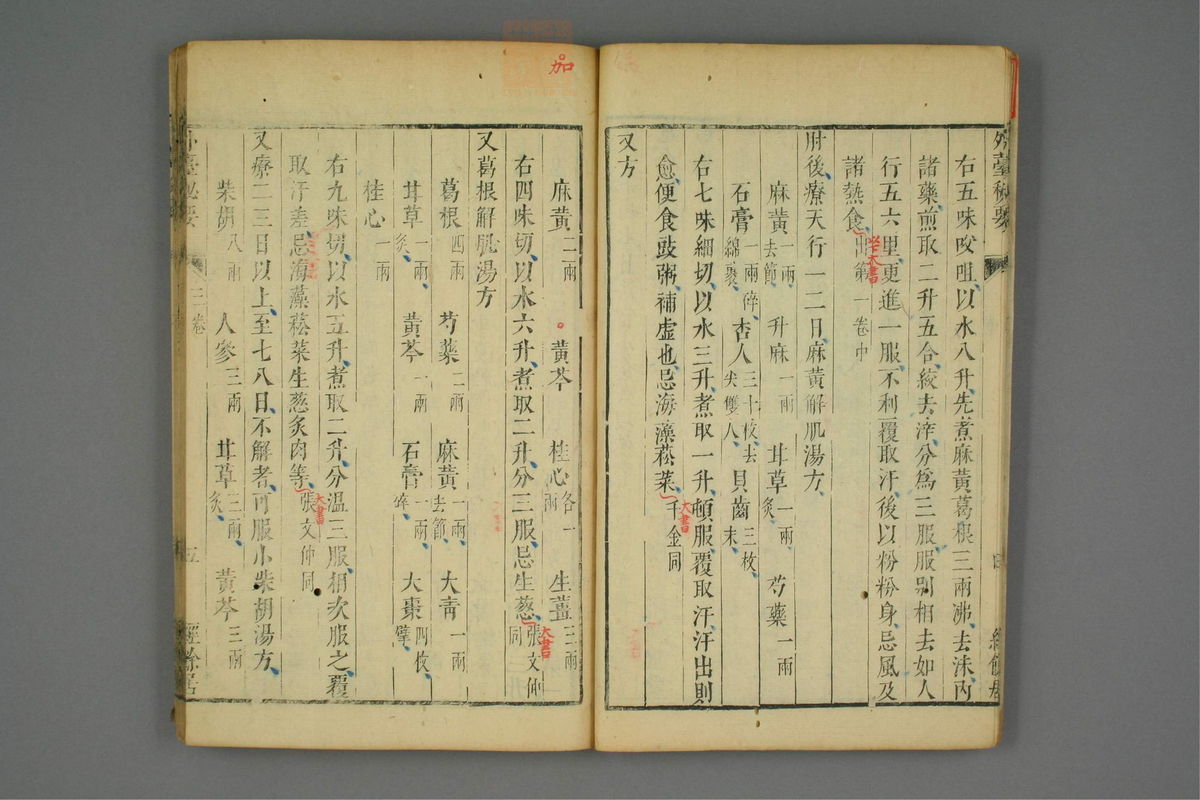 外臺秘要
右五味㕮咀以水八升先煮麻黃葛根三兩沸去沫內
諸藥煎取二升五合絞去滓分爲三服服別相去如人
行五六里更進一服不利覆取汗後以粉粉身忌風及
諸熱食出第一卷中
大書
肘後療天行一二日麻黃解肌湯方
麻黃一兩去節 升麻一兩 甘草一兩炙 芍藥一兩
石膏一兩碎綿裹 杏人三十枚去尖雙人 貝齒三枚末
右七味細切以水三升煮取一升頓服覆取汗汗出則
愈便食豉粥補虛也忌海藻菘菜千金同
大書
又方
加
麻黃二兩 黃芩 桂心各一兩 生薑三兩
右四味切以水六升煮取二升分三服忌生葱張文仲同
大書
又葛根解肌湯方
葛根四兩 芍藥二兩 麻黃一兩去節 大青一兩
甘草一兩炙 黃芩一兩 石膏一兩碎 大棗四枚擘
桂心一兩
右九味切以水五升煮取二升分溫三服相次服之覆
取汗差忌海藻菘菜生葱炙肉等張文仲同
大書
又療二三日以上至七八日不解者可服小柴胡湯方
柴胡八兩 人參三兩 甘草三兩炙 黃芩三兩
外臺秘要 三卷 五 經餘居